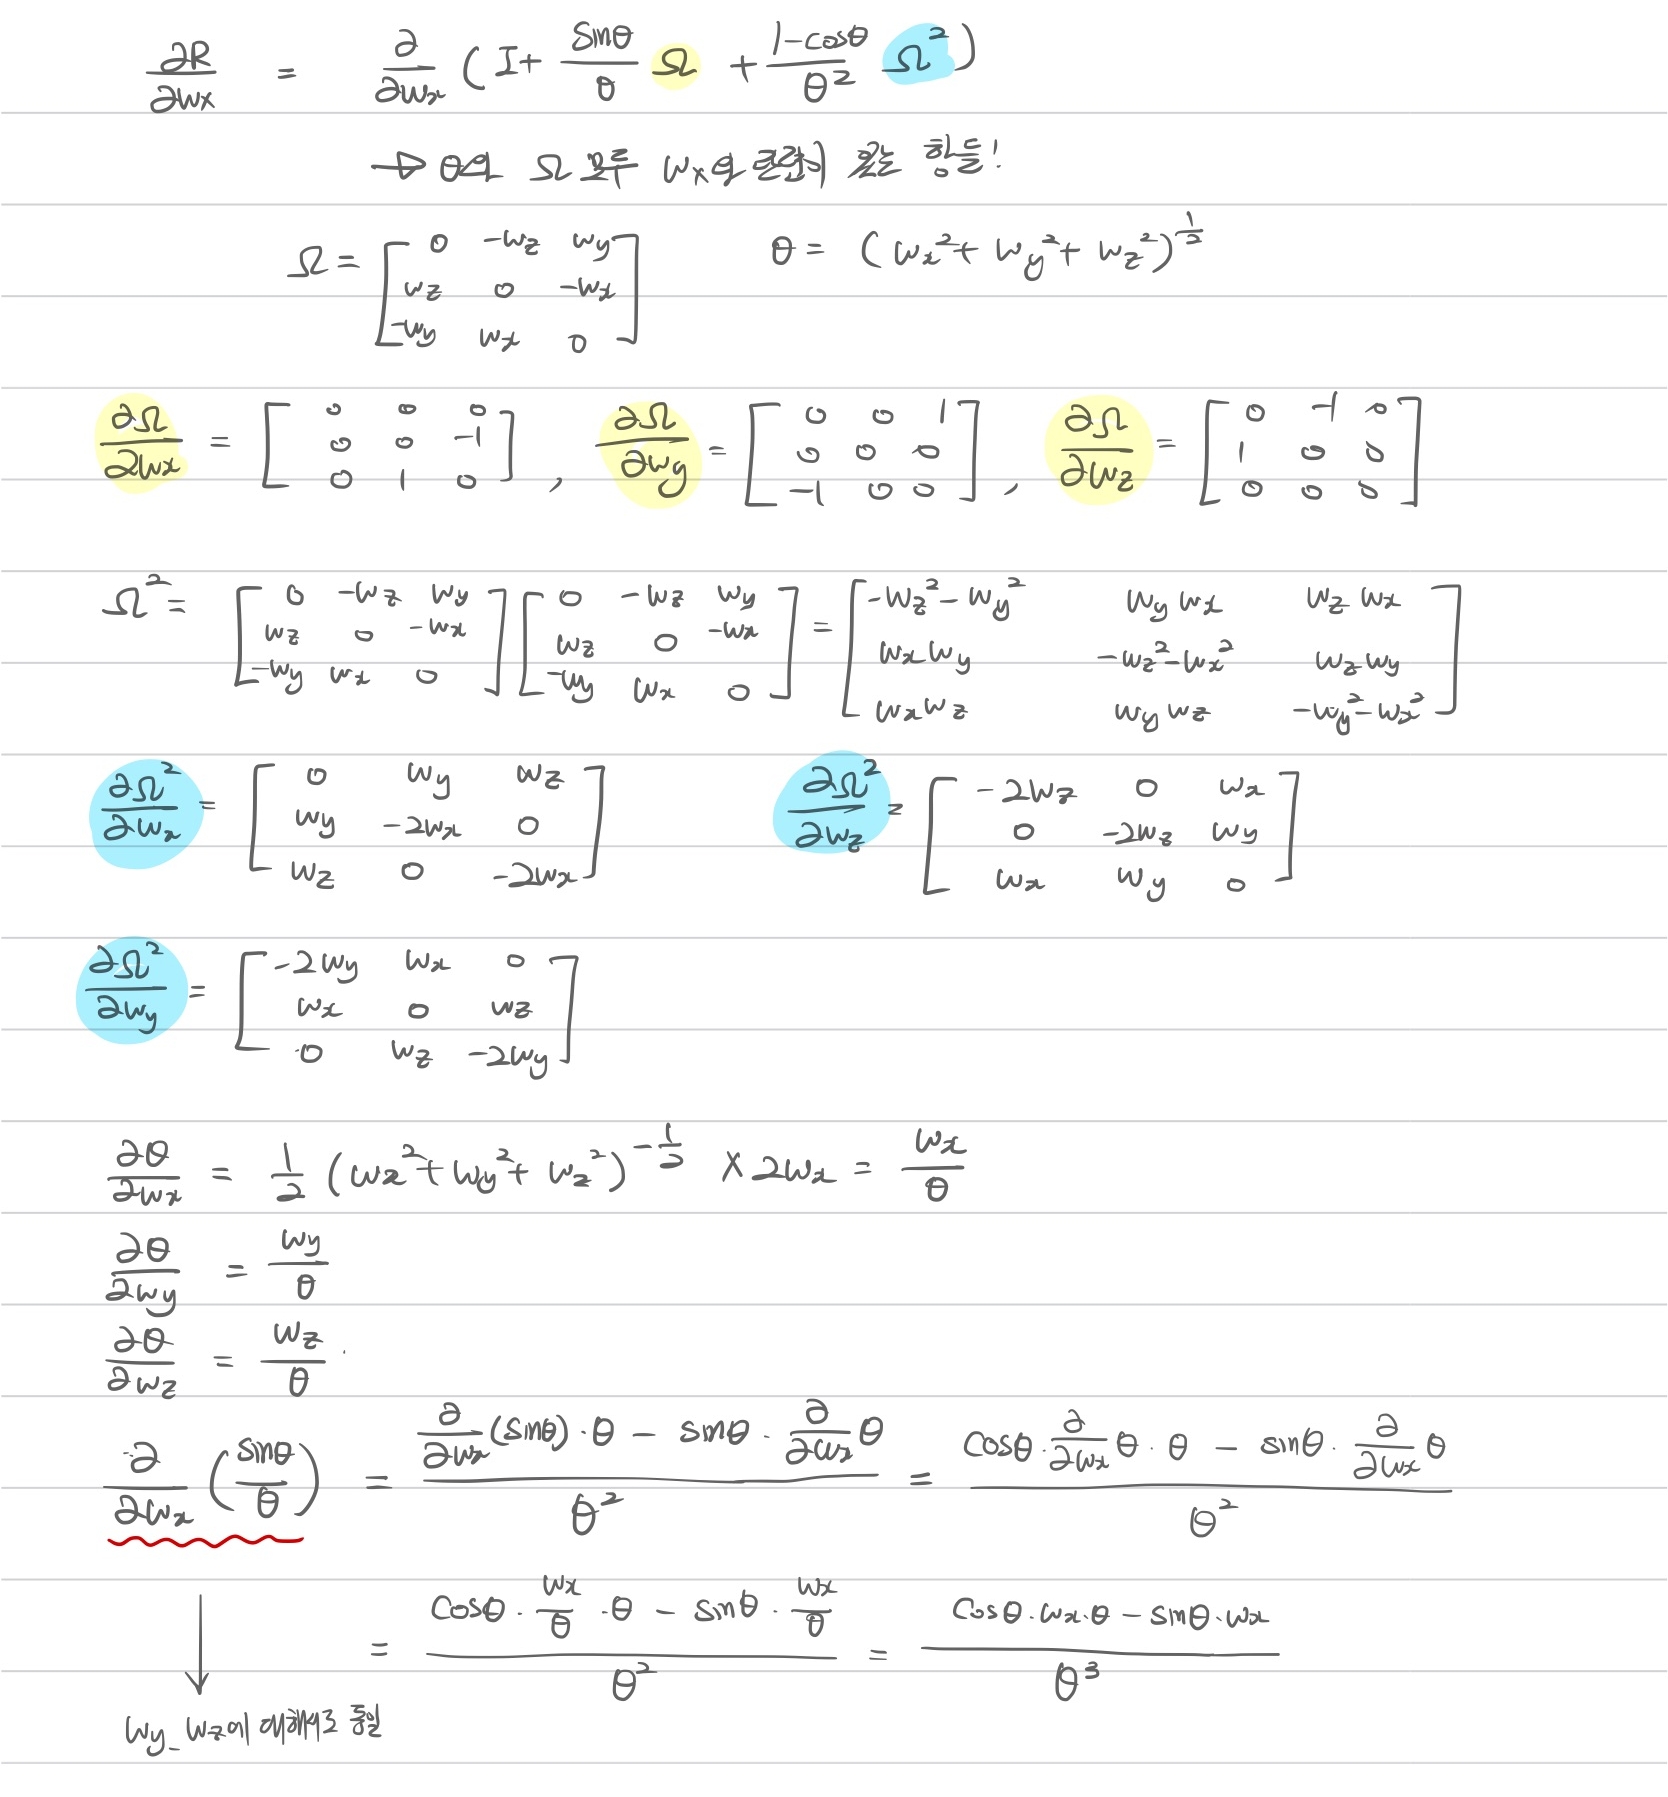 ∂R/∂wx = ∂/∂wx (I + sinθ/θ Ω + 1-cosθ/θ² Ω²)
→ θ와 Ω 모두 wx와 관련이 있는 항들!
Ω = [0 -wz wy; wz 0 -wx; -wy wx 0] θ = (wx² + wy² + wz²)^½
∂Ω/∂wx = [0 0 0; 0 0 -1; 0 1 0], ∂Ω/∂wy = [0 0 1; 0 0 0; -1 0 0], ∂Ω/∂wz = [0 -1 0; 1 0 0; 0 0 0]
Ω² = [0 -wz wy; wz 0 -wx; -wy wx 0] [0 -wz wy; wz 0 -wx; -wy wx 0] = [-wz²-wy² wy wx wz wx; wx wy -wz²-wx² wz wy; wx wz wy wz -wy²-wx²]
∂Ω²/∂wx = [0 wy wz; wy -2wx 0; wz 0 -2wx] ∂Ω²/∂wz = [-2wz 0 wx; 0 -2wz wy; wx wy 0]
∂Ω²/∂wy = [-2wy wx 0; wx 0 wz; 0 wz -2wy]
∂θ/∂wx = 1/2 (wx² + wy² + wz²)^-½ × 2wx = wx/θ
∂θ/∂wy = wy/θ
∂θ/∂wz = wz/θ
∂/∂wx (sinθ/θ) = (∂/∂wx (sinθ)·θ - sinθ · ∂/∂wx θ)/θ² = (cosθ · ∂/∂wx θ · θ - sinθ · ∂/∂wx θ)/θ²
= (cosθ · wx/θ · θ - sinθ · wx/θ)/θ² = (cosθ·wx·θ - sinθ·wx)/θ³
↓
wy, wz에 대해서도 동일